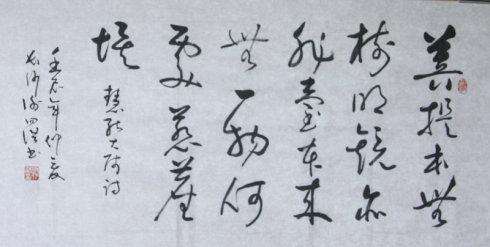 菩提本無
樹明鏡亦
非臺本來
無一物何
處惹塵
埃
慧能大師詩
年仲夏
書